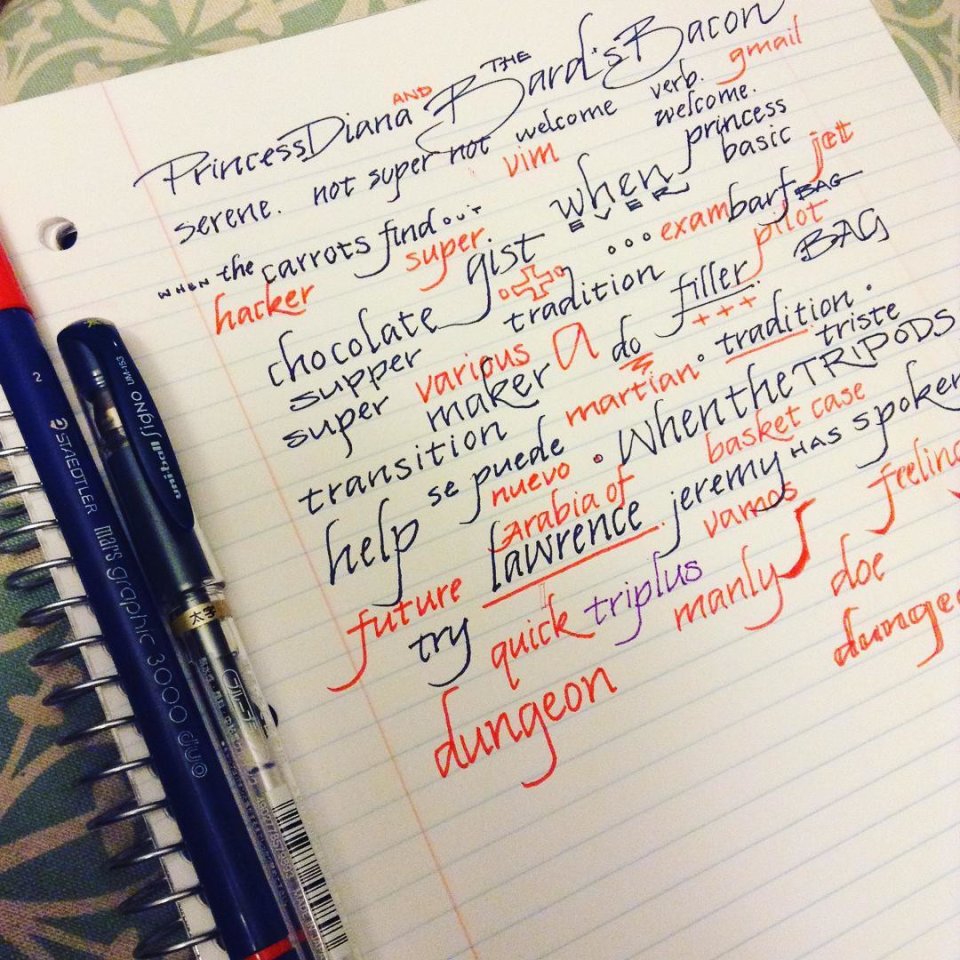 Princess Diana AND THE Bard's Bacon
serene. not super not welcome verb. gmail
vim welcome.
WHEN the carrots find OUT whEn princess
EVER basic jet
hacker super
chocolate gist ... exam barf BAG
supper tradition filler pilot BAG
super various a do +++
maker martian. tradition.
transition triste
help se puede . When the TRIPODS
nuevo basket case
Arabia of jeremy HAS spoken
lawrence vamos
future feeling
try quick triplus manly doe
dungeon
2 STAEDTLER mars graphic 3000 duo
uniball SigNO UM-153
太字